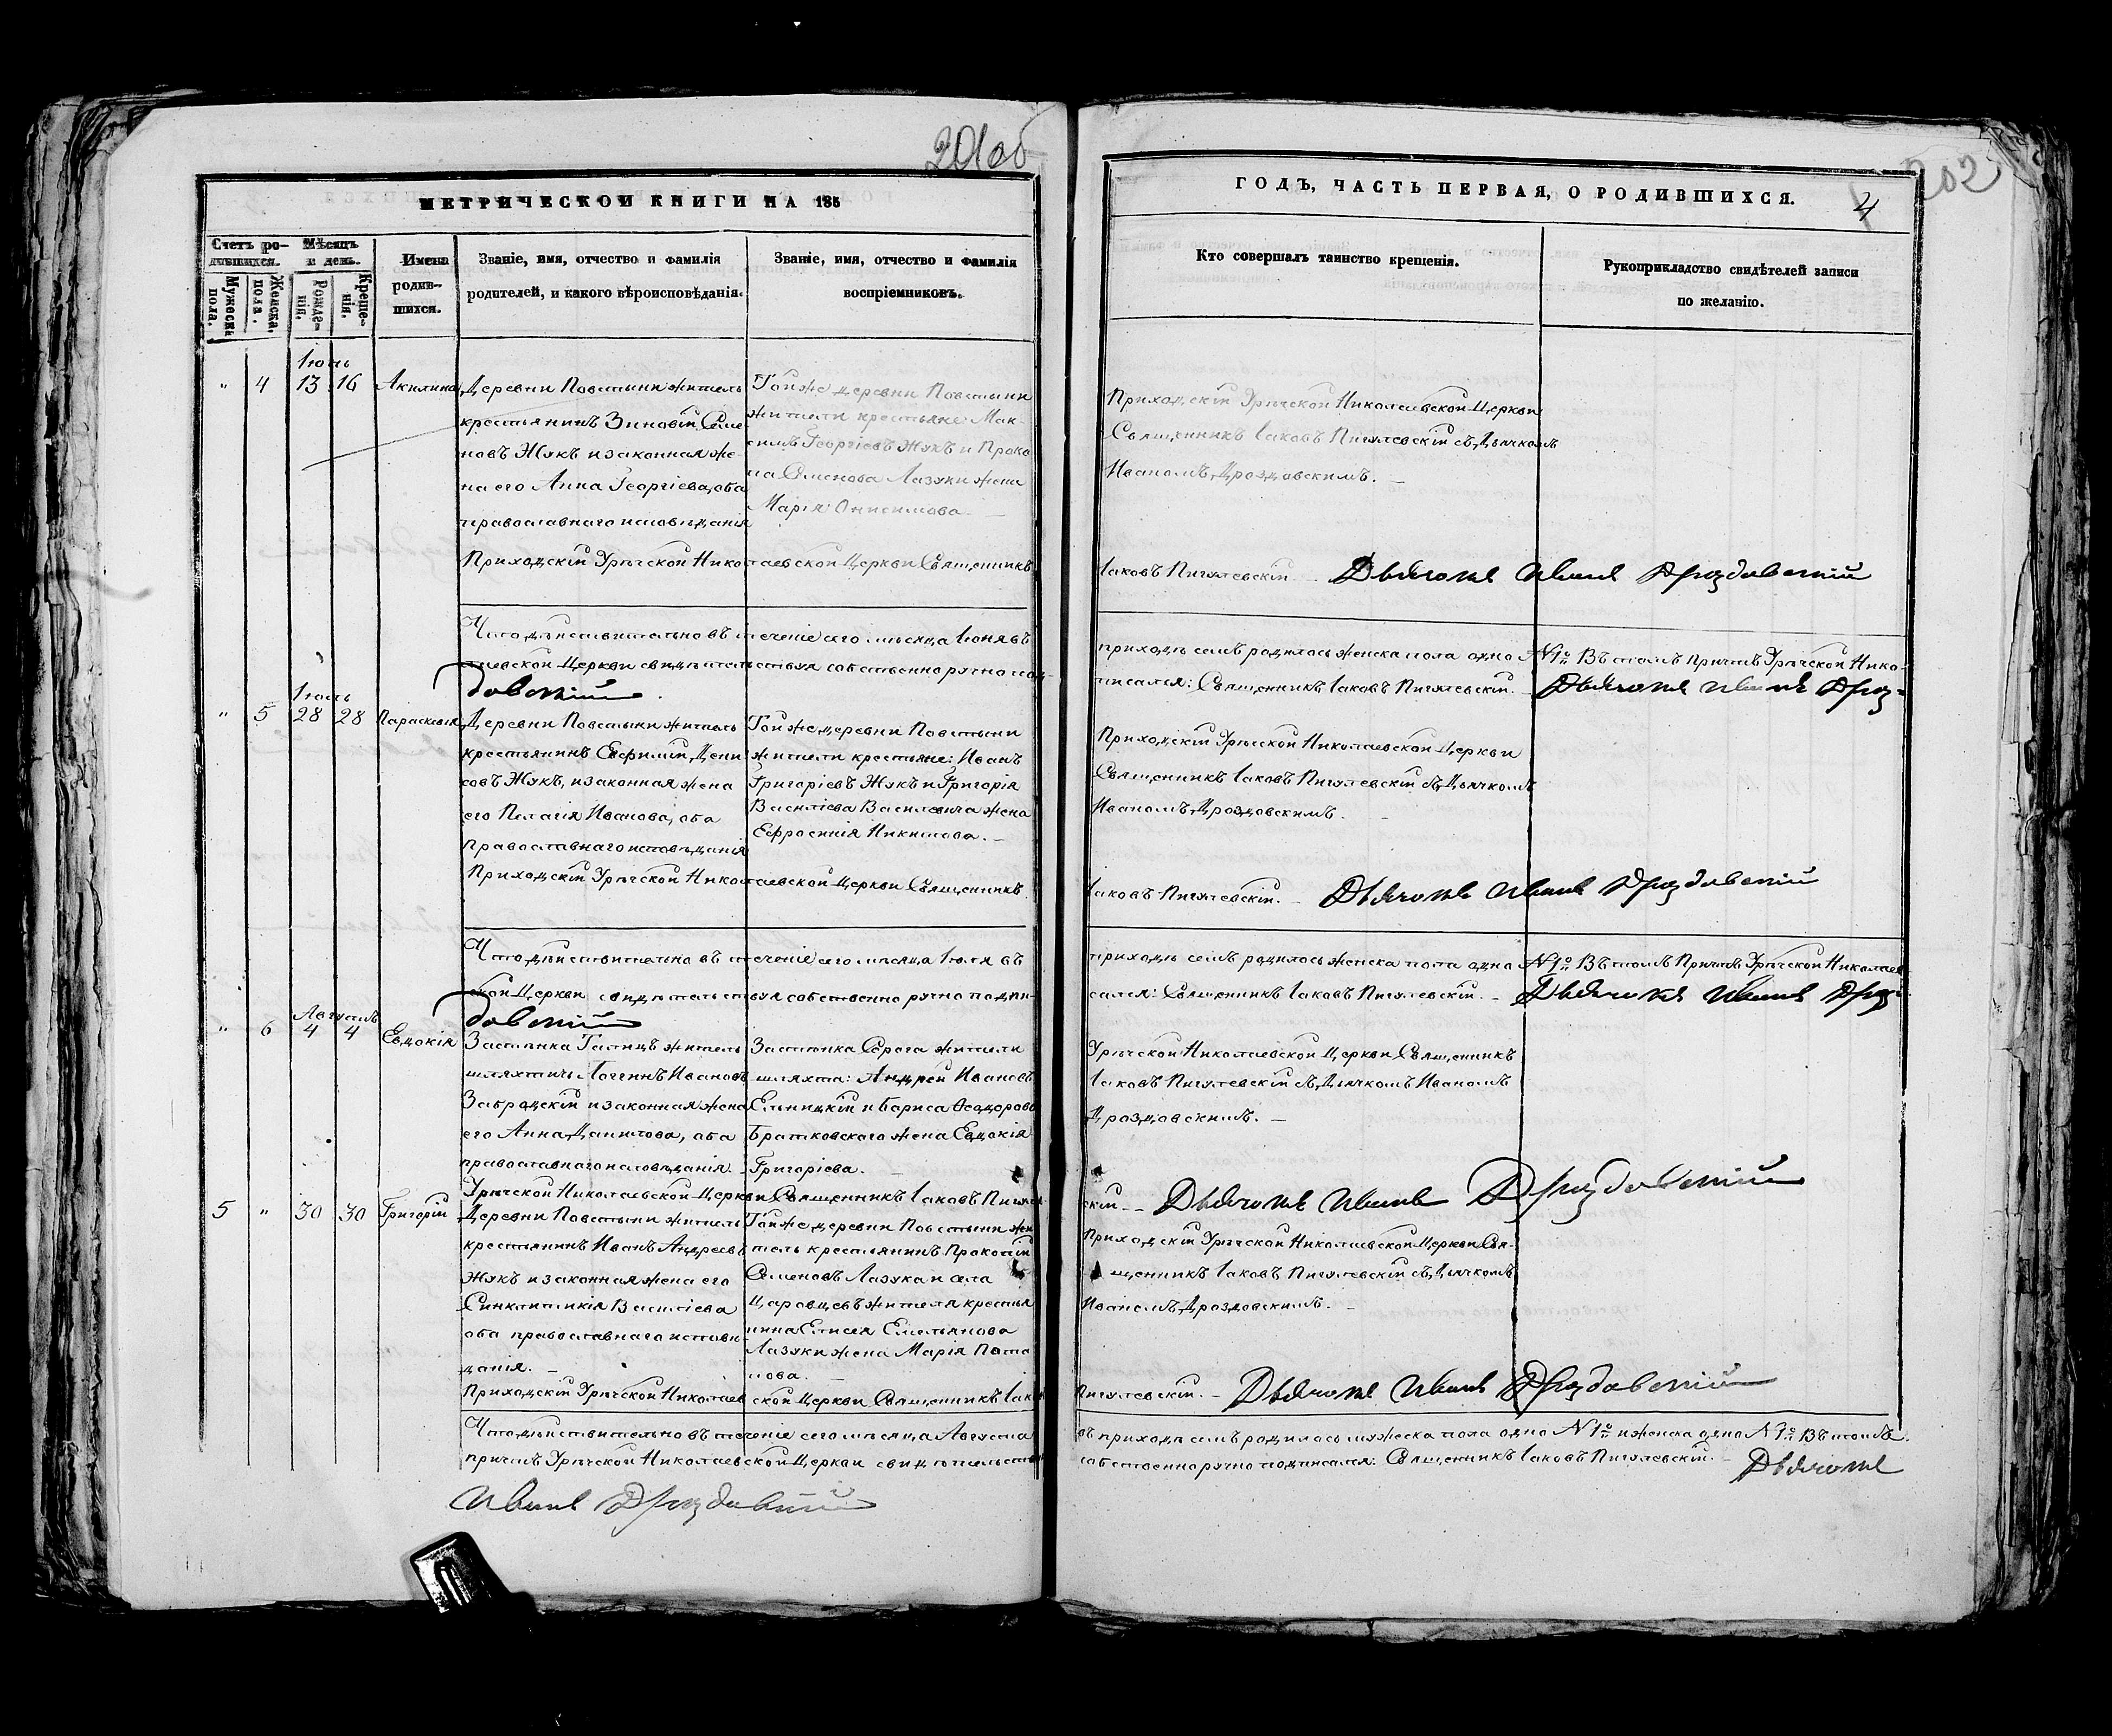 201об
МЕТРИЧЕСКОЙ КНИГИ НА 185
Счетъ ро-
дившихся.
Мѣсяцъ
и день.
Имена
родив-
шихся.
Званіе, имя, отчество и фамилія
родителей, и какого вѣроисповѣданія.
Званіе, имя, отчество и фамилія
воспріемниковъ.
Мужеска
пола.
Женска
пола.
Рожде-
нія.
Креще-
нія.
Іюнь
" 4 13 16 Акилина
Деревни Повстыни житель
крестьянинъ Зиновій Семе
новъ Жукъ и законная же-
на его Анна Георгіева, оба
православнаго исповѣданія
Тойже деревни Повстыни
жители крестьяне: Мак-
симъ Георгіевъ Жукъ и Проко
па Семенова Лазуки жена
Марія Онисимова. —
Приходскій Урѣчской Николаевской Церкви Священникъ
Что дѣйствительно въ теченіе сего мѣсяца Іюня въ
лаевской Церкви свидѣтельствуя собственноручно под-
довскій.
Іюль
" 5 28 28 Параскевія
Деревни Повстыни житель
крестьянинъ Евфимій Дени
совъ Жукъ, и законная жена
его Пелагія Иванова, оба
православнаго исповѣданія
Тойже деревни Повстыни
жители крестьяне: Иванъ
Григоріевъ Жукъ и Григорія
Василіева Василевича жена
Ефросинія Никитова. —
Приходскій Урѣчской Николаевской Церкви Священникъ
Что дѣйствительно въ теченіе сего мѣсяца Іюля въ
ской Церкви свидѣтельствуя собственноручно подпи-
довскій
Августъ
" 6 4 4 Евдокія
Застѣнка Галицъ житель
шляхтичь Логгинъ Ивановъ
Забродскій и законная жена
его Анна Данилова, оба
православнаго исповѣданія.
Застѣнка Серага жители
шляхта: Андрей Ивановъ
Ельницкій и Бориса Ѳеодорова
Братковскаго жена Евдокія
Григоріева. —
Урѣчской Николаевской Церкви Священникъ Іаковъ Пигулев-
5 " 30 30 Григорій
Деревни Повстыни житель
крестьянинъ Иванъ Андреевъ
Жукъ и законная жена его
Синклитикія Василіева
оба православнаго исповѣ-
данія. —
Тойже деревни Повстыни жи
тель крестьянинъ Прокопій
Семеновъ Лазука и села
Царовцевъ жителя крестья
нина Елисея Емельянова
Лазуки жена Марія Пота
пова. —
Приходскій Урѣчской Николаевской Церкви Священникъ Іаковъ
Что дѣйствительно въ теченіе сего мѣсяца Августа
причтъ Урѣчской Николаевской Церкви свидѣтельствуя
Иванъ Дроздовскій
202
4
ГОДЪ, ЧАСТЬ ПЕРВАЯ, О РОДИВШИХСЯ.
Кто совершалъ таинство крещенія.
Рукоприкладство свидѣтелей записи
по желанію.
Приходскій Урѣчской Николаевской Церкви
Священникъ Іаковъ Пигулевскій съ Дьячкомъ
Иваномъ Дроздовскимъ. —
Іаковъ Пигулевскій. Дьячокъ Иванъ Дроздовскій
приходѣ семъ родилось женска пола одна №1й Въ томъ Причтъ Урѣчской Нико-
писался: Священникъ Іаковъ Пигулевскій. Дьячокъ Иванъ Дроз-
Приходскій Урѣчской Николаевской Церкви
Священникъ Іаковъ Пигулевскій съ Дьячкомъ
Иваномъ Дроздовскимъ. —
Іаковъ Пигулевскій. — Дьячокъ Иванъ Дроздовскій
приходѣ семъ родилось женска пола одна №1й Въ томъ Причтъ Урѣчской Николаев
сался: Священникъ Іаковъ Пигулевскій. — Дьячокъ Иванъ Дроз-
Урѣчской Николаевской Церкви Священникъ
Іаковъ Пигулевскій съ Дьячкомъ Иваномъ
Дроздовскимъ. —
скій. — Дьячокъ Иванъ Дроздовскій
Приходскій Урѣчской Николаевской Церкви Свя-
щенникъ Іаковъ Пигулевскій съ Дьячкомъ
Иваномъ Дроздовскимъ. —
Пигулевскій. — Дьячокъ Иванъ Дроздовскій
въ приходѣ семъ родилось мужеска пола одно №1й и женска одна №1й Въ томъ
собственноручно подписался: Священникъ Іаковъ Пигулевскій. Дьячокъ